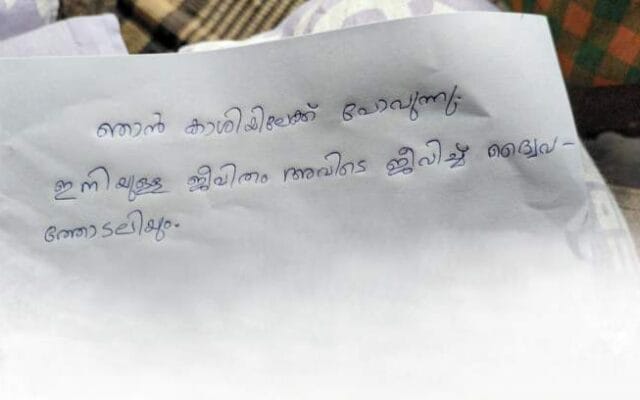 ഞാൻ കാശിയിലേക്ക് പോവുന്നു.
ഇനിയുള്ള ജീവിതം അവിടെ ജീവിച്ച് ദൈവ-
ത്തോടലിയും.